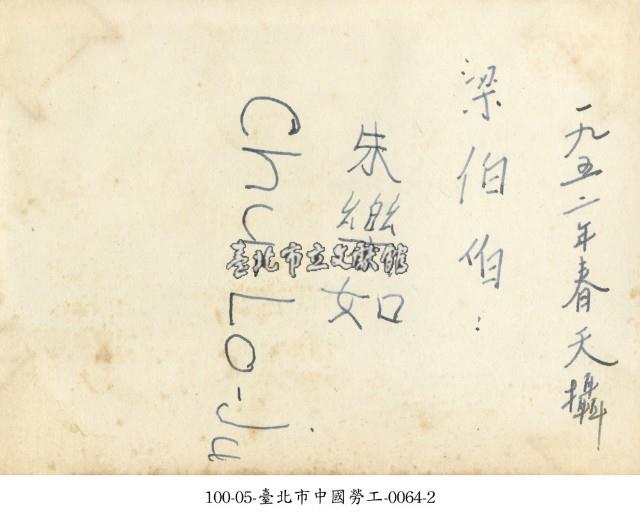 一九五二年春天攝
梁伯伯:
朱樂如
Chu Lo-Ju
臺北市立文獻館
100-05-臺北市中國勞工-0064-2